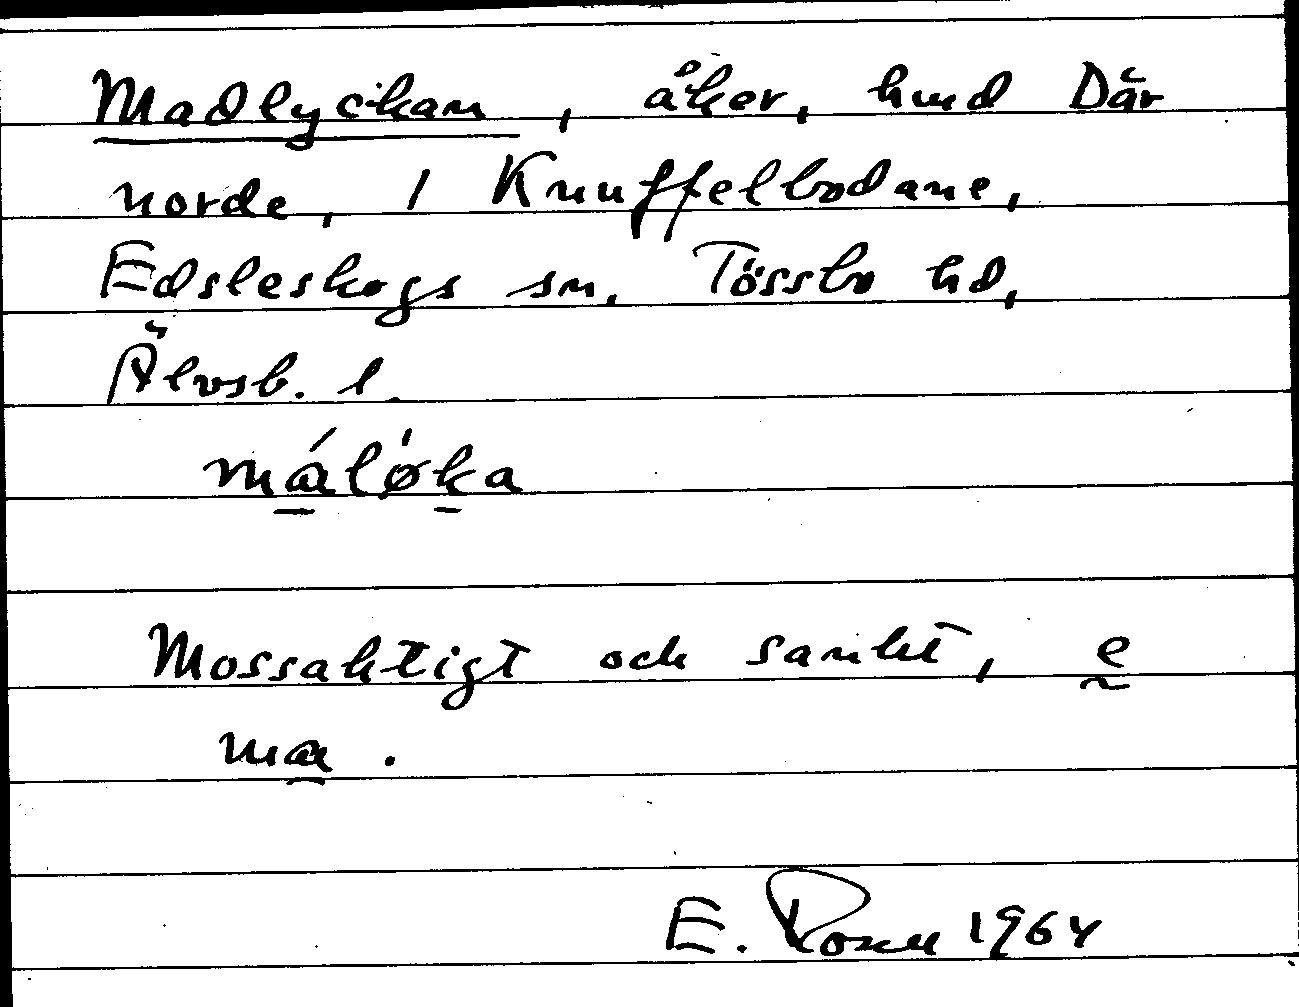 Madlyckan, åker, hmd Där
norde, 1 Knuffelbodane,
Edsleskogs sn, Tössbo hd,
Älvsb. l.
máløka
Mossaktigt och sankt, e
ma.
E. Rosen 1964